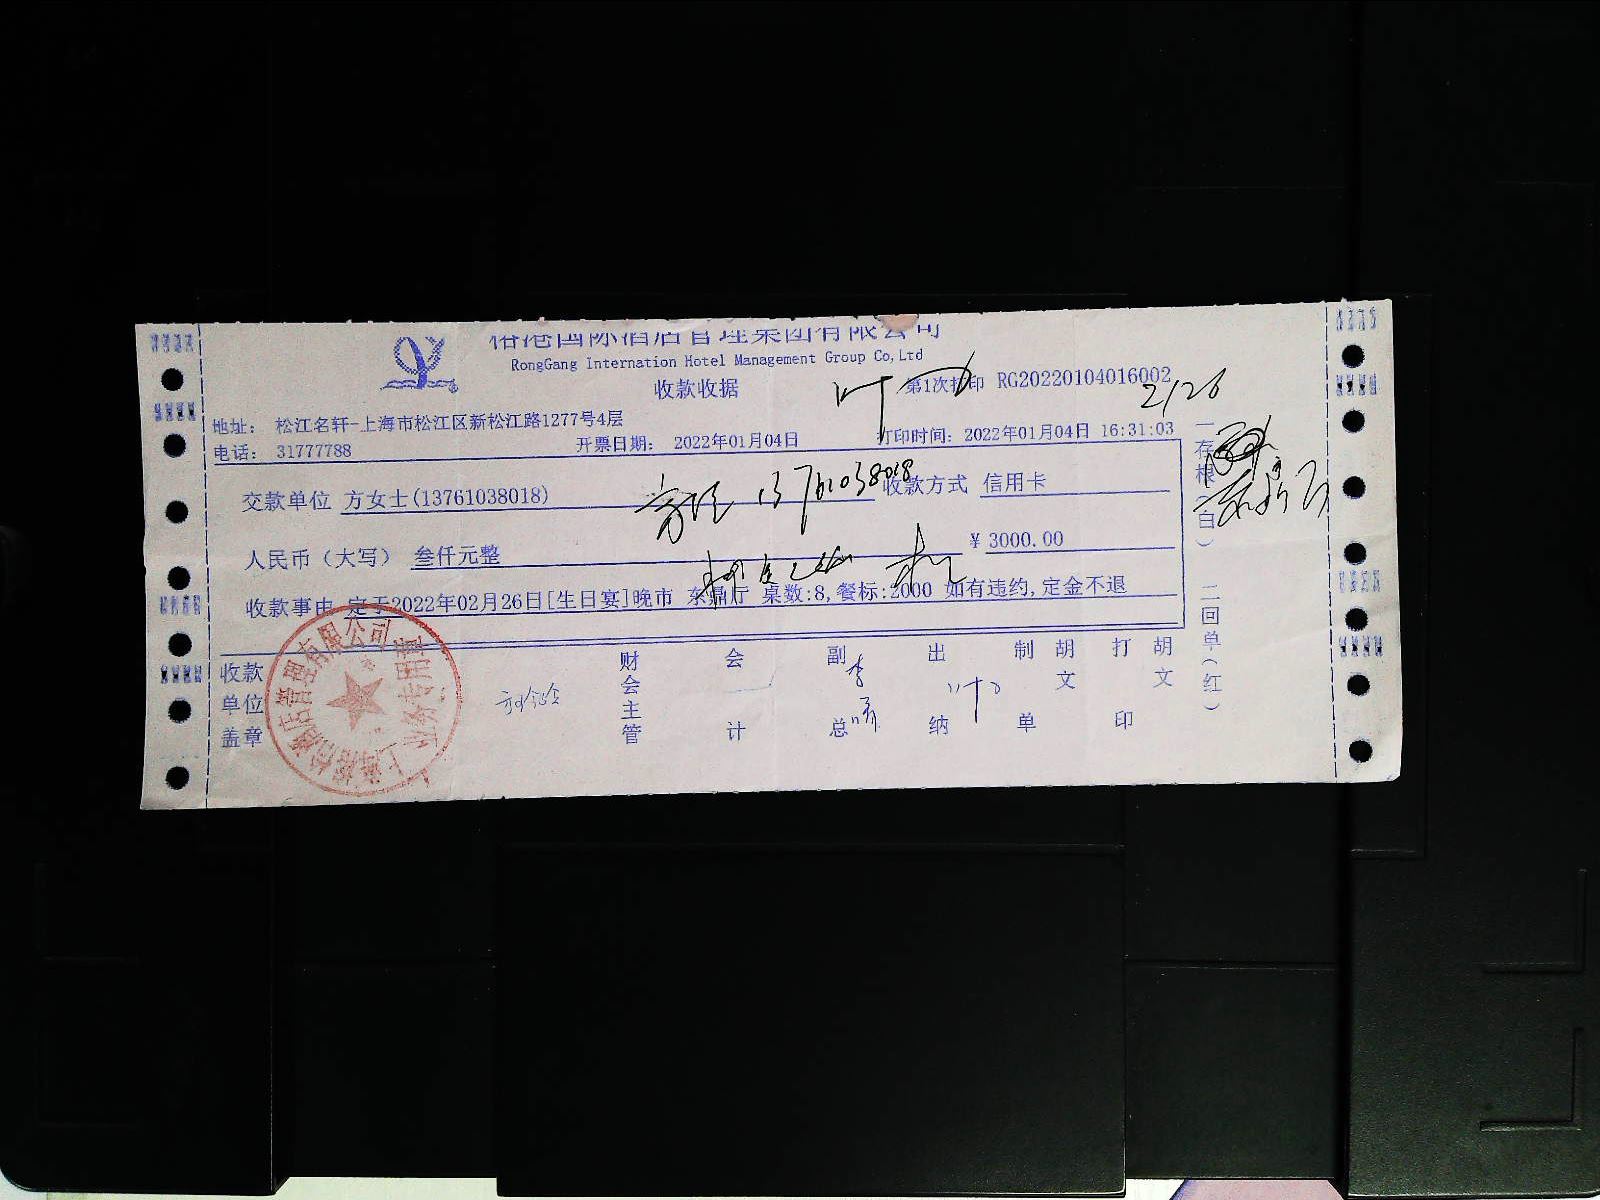 裕港国际酒店管理集团有限公司
RongGang Internation Hotel Management Group Co,Ltd
收款收据
第1次打印 RG20220104016002
2/26
地址: 松江名轩-上海市松江区新松江路1277号4层
电话: 31777788 开票日期: 2022年01月04日 打印时间: 2022年01月04日 16:31:03
交款单位 方女士(13761038018) 13761038018 收款方式 信用卡
人民币(大写) 叁仟元整 ¥ 3000.00
收款事由 定于2022年02月26日[生日宴]晚市 东鼎厅 桌数:8,餐标:2000 如有违约,定金不退
收款单位盖章 财会主管 会计 副总 出纳 制单 胡文 打印 胡文
一存根(白) 二回单(红)
业务专用章